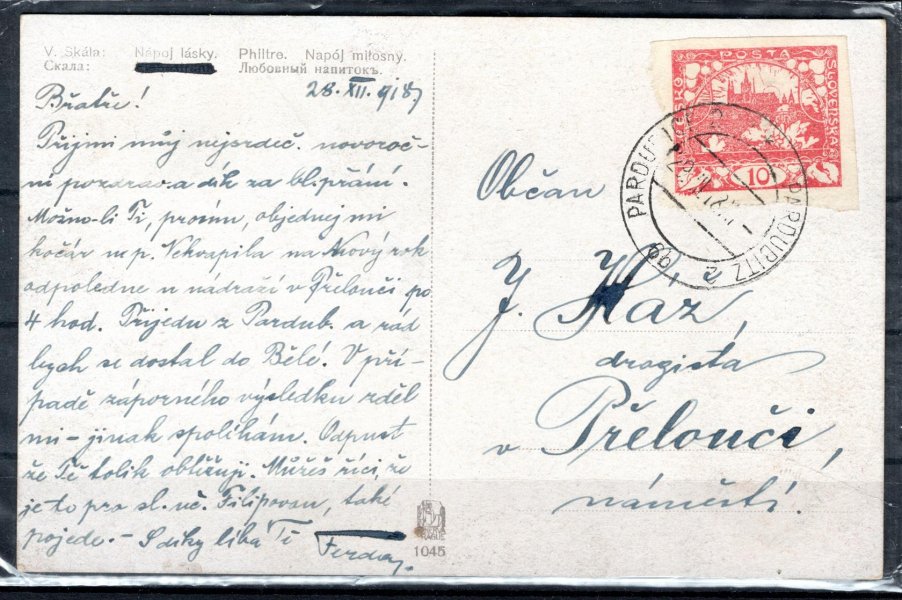 V. Skála: Nápoj lásky. Philtre. Napój miłosny.
Скала: Любовный напитокъ.
28. XII. 918
Bratře!
Přijmi můj nejsrdeč. novoroč-
ní pozdrav a dík za bl. přání.
Možno-li Ti, prosím, objednej mi
kočár u p. Nekvapila na Nový rok
odpoledne u nádraží v Přelouči po
4 hod. Přijedu z Pardub. a rád
bych se dostal do Bělé. V pří-
padě záporného výsledku zděl
mi – jinak spoléhám. Odpusť
že Tě tolik obtěžuji. Můžeš říci, že
je to pro sl. uč. Filipovou, také
pojede. – S díky líbá Tě
Ferda
1045
POŠTA
ČESKO
SLOVENSKÁ
10
PARDUBICE 2
PARDUBITZ 2
Občan
J. Ház,
drogista
v Přelouči,
náměstí.